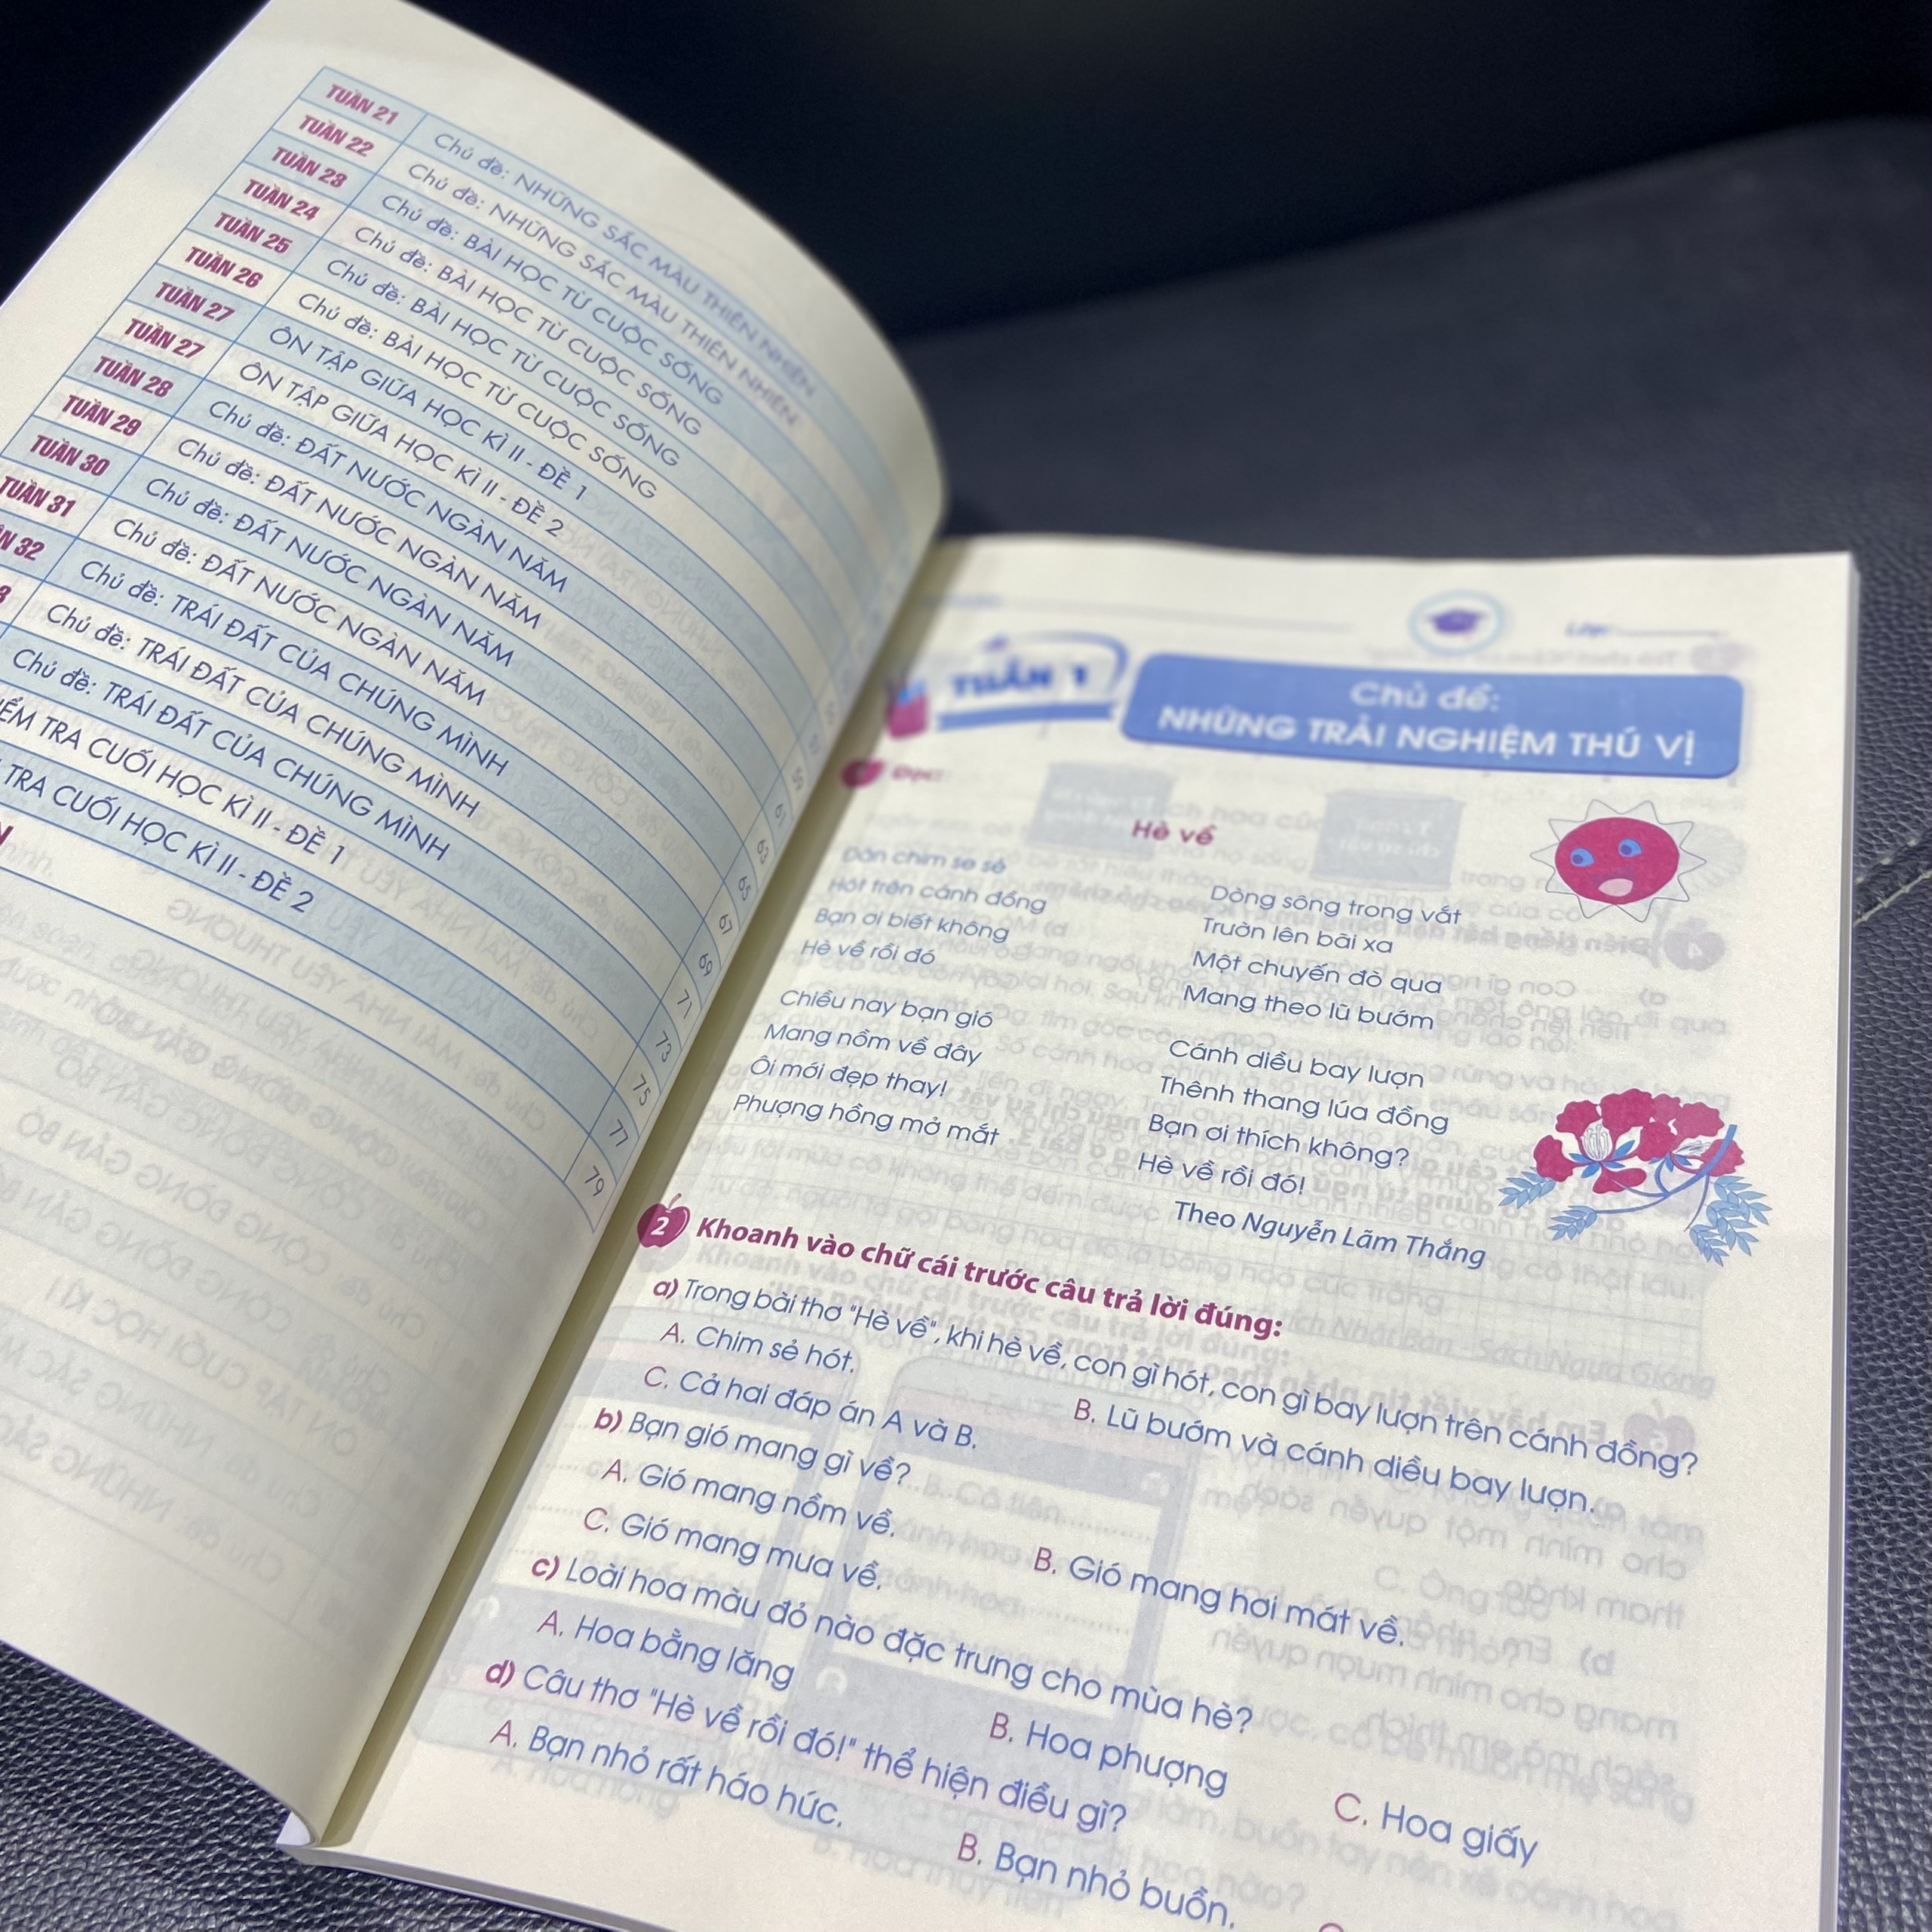 TUẦN 21 Chủ đề: NHỮNG SẮC MÀU THIÊN NHIÊN
TUẦN 22 Chủ đề: NHỮNG SẮC MÀU THIÊN NHIÊN
TUẦN 23 Chủ đề: BÀI HỌC TỪ CUỘC SỐNG
TUẦN 24 Chủ đề: BÀI HỌC TỪ CUỘC SỐNG
TUẦN 25 Chủ đề: BÀI HỌC TỪ CUỘC SỐNG
TUẦN 26 Chủ đề: BÀI HỌC TỪ CUỘC SỐNG
TUẦN 27 ÔN TẬP GIỮA HỌC KÌ II - ĐỀ 1
TUẦN 27 ÔN TẬP GIỮA HỌC KÌ II - ĐỀ 2
TUẦN 28 Chủ đề: ĐẤT NƯỚC NGÀN NĂM
TUẦN 29 Chủ đề: ĐẤT NƯỚC NGÀN NĂM
TUẦN 30 Chủ đề: ĐẤT NƯỚC NGÀN NĂM
TUẦN 31 Chủ đề: ĐẤT NƯỚC NGÀN NĂM
32 Chủ đề: TRÁI ĐẤT CỦA CHÚNG MÌNH
Chủ đề: TRÁI ĐẤT CỦA CHÚNG MÌNH
Chủ đề: TRÁI ĐẤT CỦA CHÚNG MÌNH
TRA CUỐI HỌC KÌ II - ĐỀ 1
TRA CUỐI HỌC KÌ II - ĐỀ 2
59
61
63
65
67
69
71
73
75
77
79
Lớp:
TUẦN 1
Chủ đề:
NHỮNG TRẢI NGHIỆM THÚ VỊ
Đọc:
Hè về
Đàn chim se sẻ
Hót trên cánh đồng
Bạn ơi biết không
Hè về rồi đó
Chiều nay bạn gió
Mang nồm về đây
Ôi mới đẹp thay!
Phượng hồng mở mắt
Dòng sông trong vắt
Trườn lên bãi xa
Một chuyến đò qua
Mang theo lũ bướm
Cánh diều bay lượn
Thênh thang lúa đồng
Bạn ơi thích không?
Hè về rồi đó!
Theo Nguyễn Lãm Thắng
2 Khoanh vào chữ cái trước câu trả lời đúng:
a) Trong bài thơ "Hè về", khi hè về, con gì hót, con gì bay lượn trên cánh đồng?
A. Chim sẻ hót. B. Lũ bướm và cánh diều bay lượn.
C. Cả hai đáp án A và B.
b) Bạn gió mang gì về?
A. Gió mang nồm về. B. Gió mang hơi mát về.
C. Gió mang mưa về.
c) Loài hoa màu đỏ nào đặc trưng cho mùa hè?
A. Hoa bằng lăng B. Hoa phượng C. Hoa giấy
d) Câu thơ "Hè về rồi đó!" thể hiện điều gì?
A. Bạn nhỏ rất háo hức. B. Bạn nhỏ buồn.